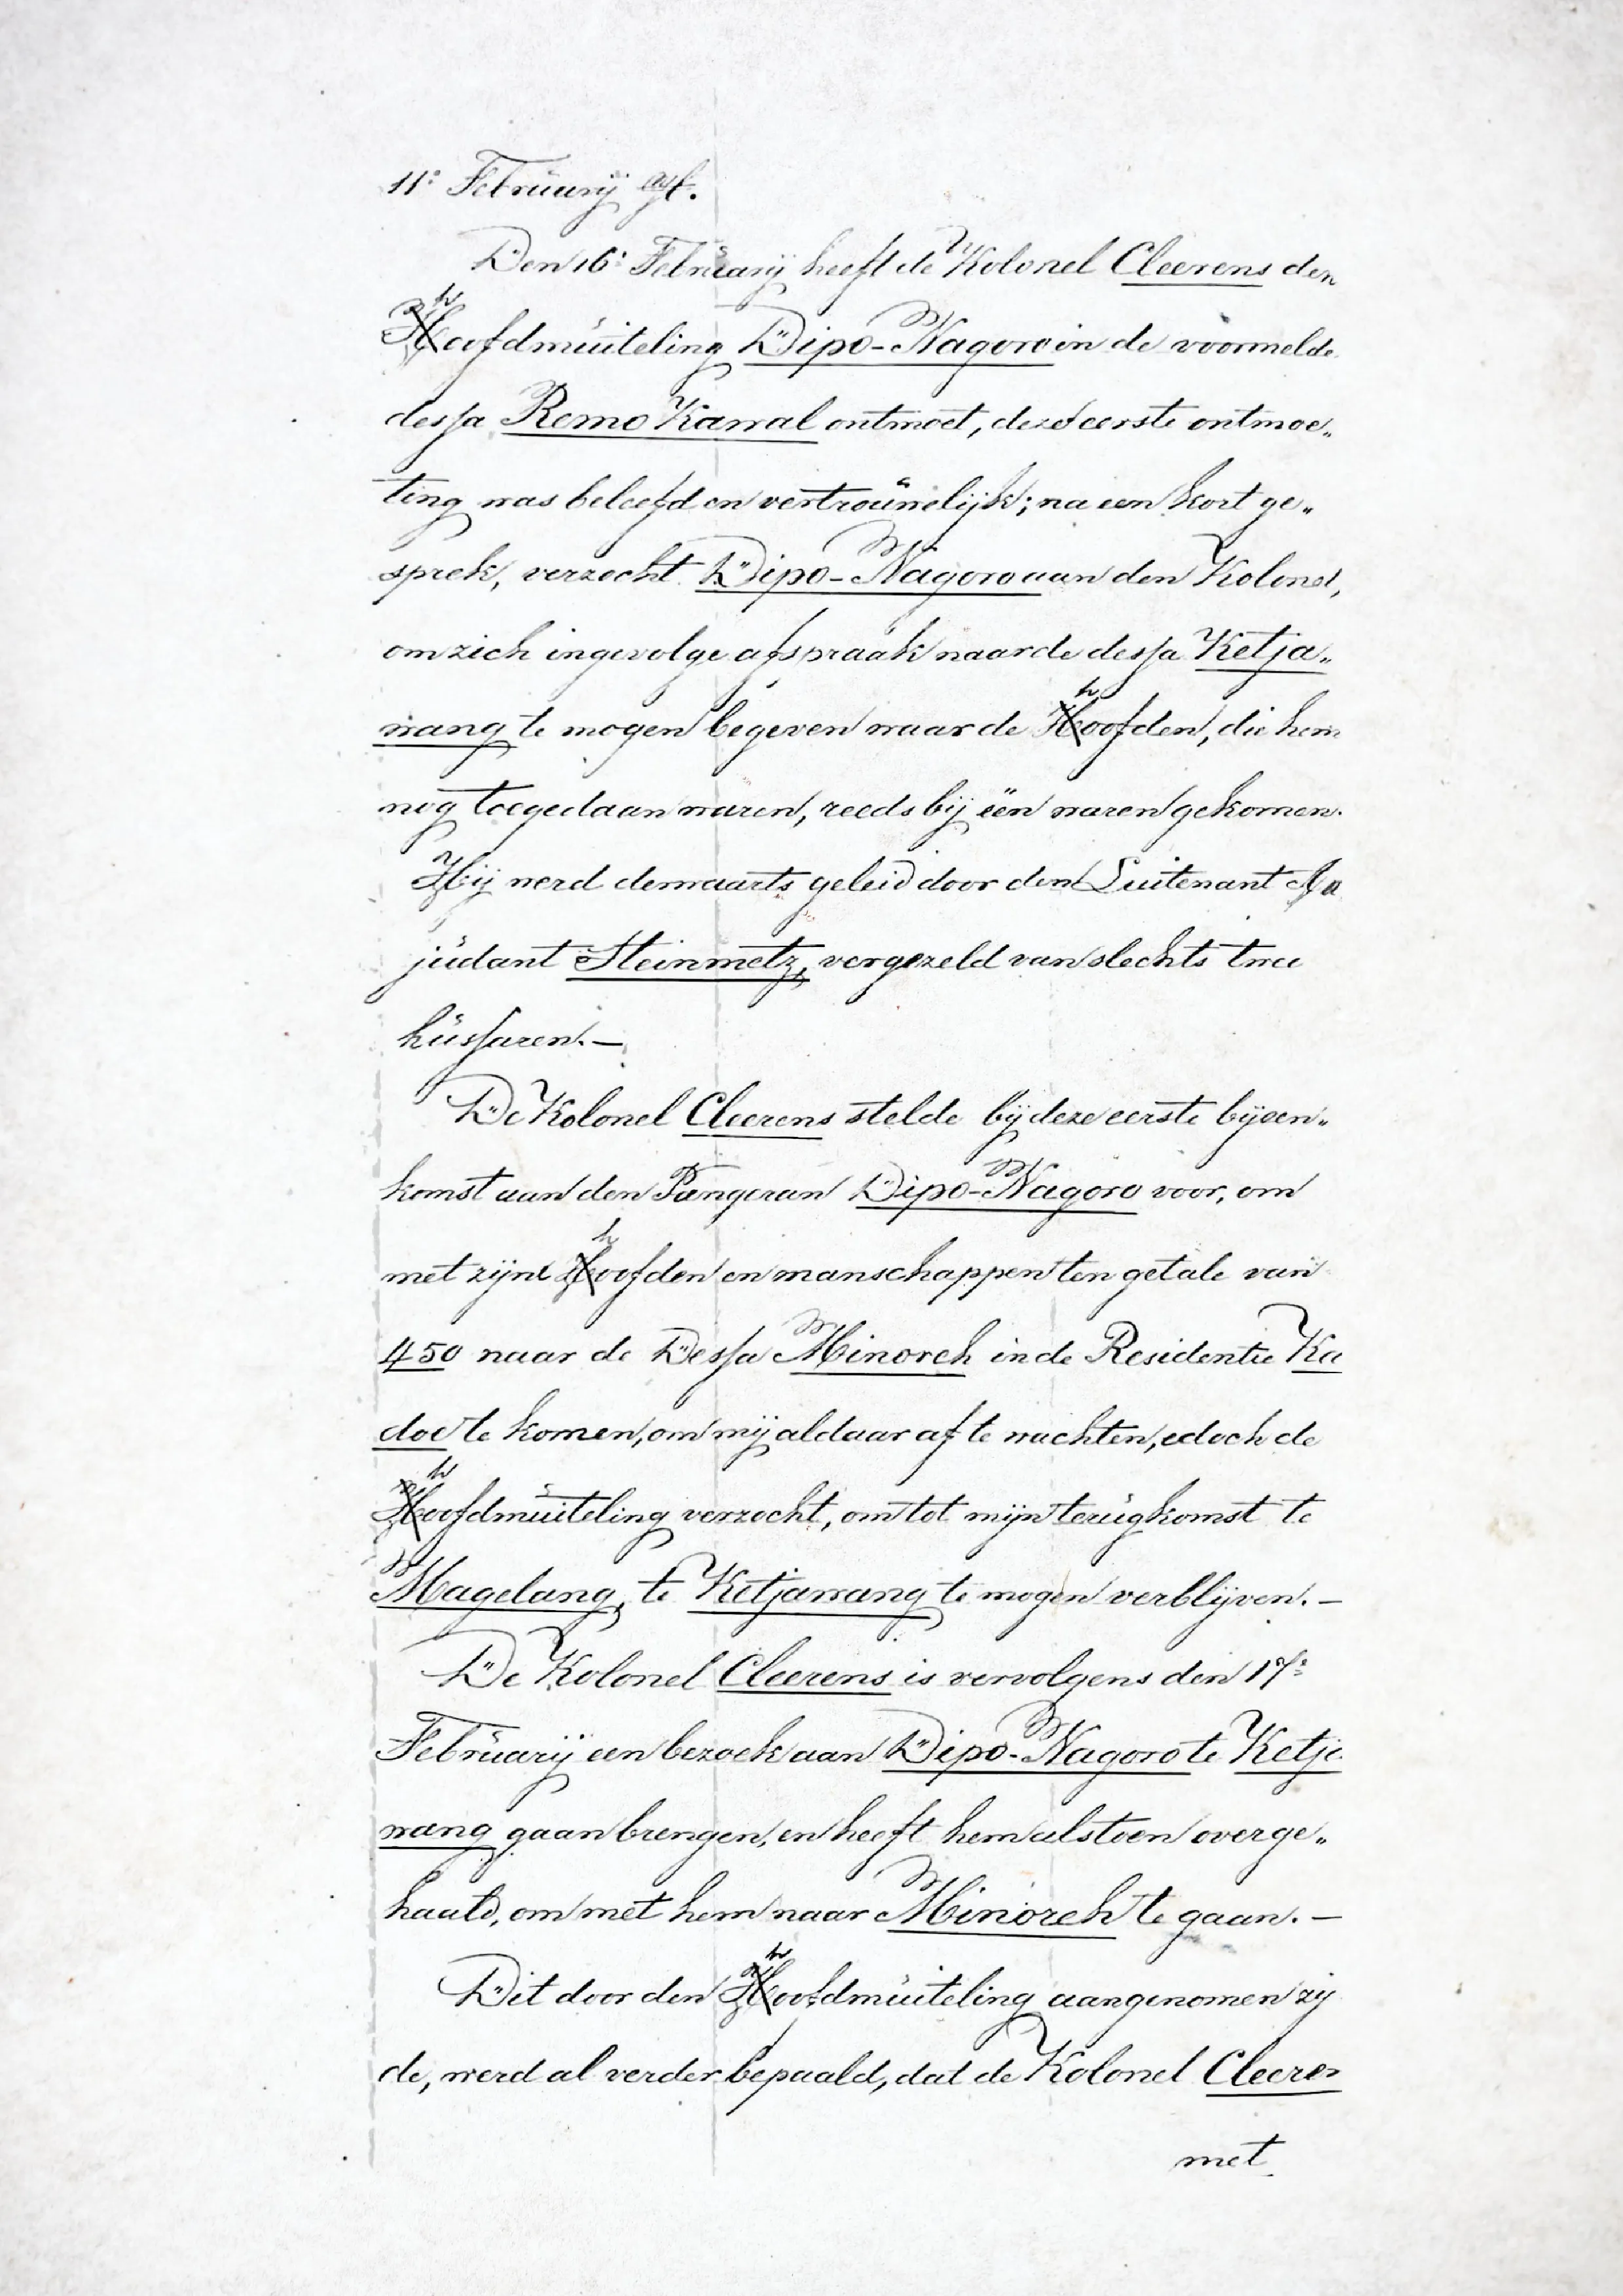 11e Februarij agt.
Den 16e Februarij heeft de Kolonel Cleerens den
hoofdmuiteling Dipo-Nagoro in de voormelde
dessa Remo Kamal ontmoet, deze eerste ontmoe„
ting was beleefd en vertrouwelijk; na een kort ge„
sprek, verzocht Dipo-Nagoro aan den Kolonel,
om zich ingevolge afspraak naar de dessa Ketja„
wang te mogen begeven waar de hoofden, die hem
nog toegedaan waren, reeds bij één waren gekomen.
Hij werd derwaarts geleid door den Luitenant A
judant Steinmetz, vergezeld van slechts twee
hussaren. —
De Kolonel Cleerens stelde bij deze eerste bijeen„
komst aan den Pangeran Dipo-Nagoro voor, om
met zijne hoofden en manschappen ten getale van
450 naar de Dessa Minoreh in de Residentie Ka
doe te komen, om mij aldaar af te wachten, edoch de
hoofdmuiteling verzocht, om tot mijn terugkomst te
Magelang, te Ketjawang te mogen verblijven. —
De Kolonel Cleerens is vervolgens den 17e
Februarij een bezoek aan Dipo-Nagoro te Ketja
wang gaan brengen, en heeft hem alstoen overge„
haald, om met hem naar Minoreh te gaan. —
Dit door den hoofdmuiteling aangenomen zij
de, werd al verder bepaald, dat de Kolonel Cleeren
met